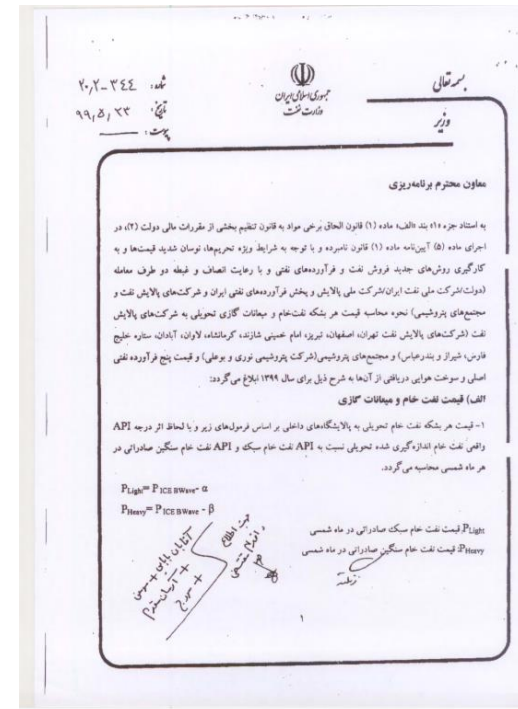 بسمه تعالی
جمهوری اسلامی ایران
وزارت نفت
وزیر
شماره: ۲۰/۲-۳۴۴
تاریخ: ۹۹/۵/۲۳
پیوست:
معاون محترم برنامه‌ریزی
به استناد جزء «۱» بند «الف» ماده (۱) قانون الحاق برخی مواد به قانون تنظیم بخشی از مقررات مالی دولت (۲)، در
اجرای ماده (۵) آیین‌نامه ماده (۱) قانون نامبرده و با توجه به شرایط ویژه تحریم‌ها، نوسان شدید قیمت‌ها و به
کارگیری روش‌های جدید فروش نفت و فرآورده‌های نفتی و با رعایت انصاف و غبطه دو طرف معامله
(دولت/شرکت ملی نفت ایران/شرکت ملی پالایش و پخش فرآورده‌های نفتی ایران و شرکت‌های پالایش نفت و
مجتمع‌های پتروشیمی) نحوه محاسبه قیمت هر بشکه نفت‌خام و میعانات گازی تحویلی به شرکت‌های پالایش
نفت (شرکت‌های پالایش نفت تهران، اصفهان، تبریز، امام خمینی شازند، کرمانشاه، لاوان، آبادان، ستاره خلیج
فارس، شیراز و بندرعباس) و مجتمع‌های پتروشیمی (شرکت پتروشیمی نوری و بوعلی) و قیمت پنج فرآورده نفتی
اصلی و سوخت هوایی دریافتی از آن‌ها به شرح ذیل برای سال ۱۳۹۹ ابلاغ می‌گردد:
الف) قیمت نفت خام و میعانات گازی
۱- قیمت هر بشکه نفت خام تحویلی به پالایشگاه‌های داخلی بر اساس فرمول‌های زیر و با لحاظ اثر درجه API
واقعی نفت خام اندازه‌گیری شده تحویلی نسبت به API نفت خام سبک و API نفت خام سنگین صادراتی در
هر ماه شمسی محاسبه می‌گردد.
P Light= P ICE BWave- α
P Heavy= P ICE BWave - β
P Light: قیمت نفت خام سبک صادراتی در ماه شمسی
P Heavy: قیمت نفت خام سنگین صادراتی در ماه شمسی
جهت اطلاع
و اقدام مقتضی
۱